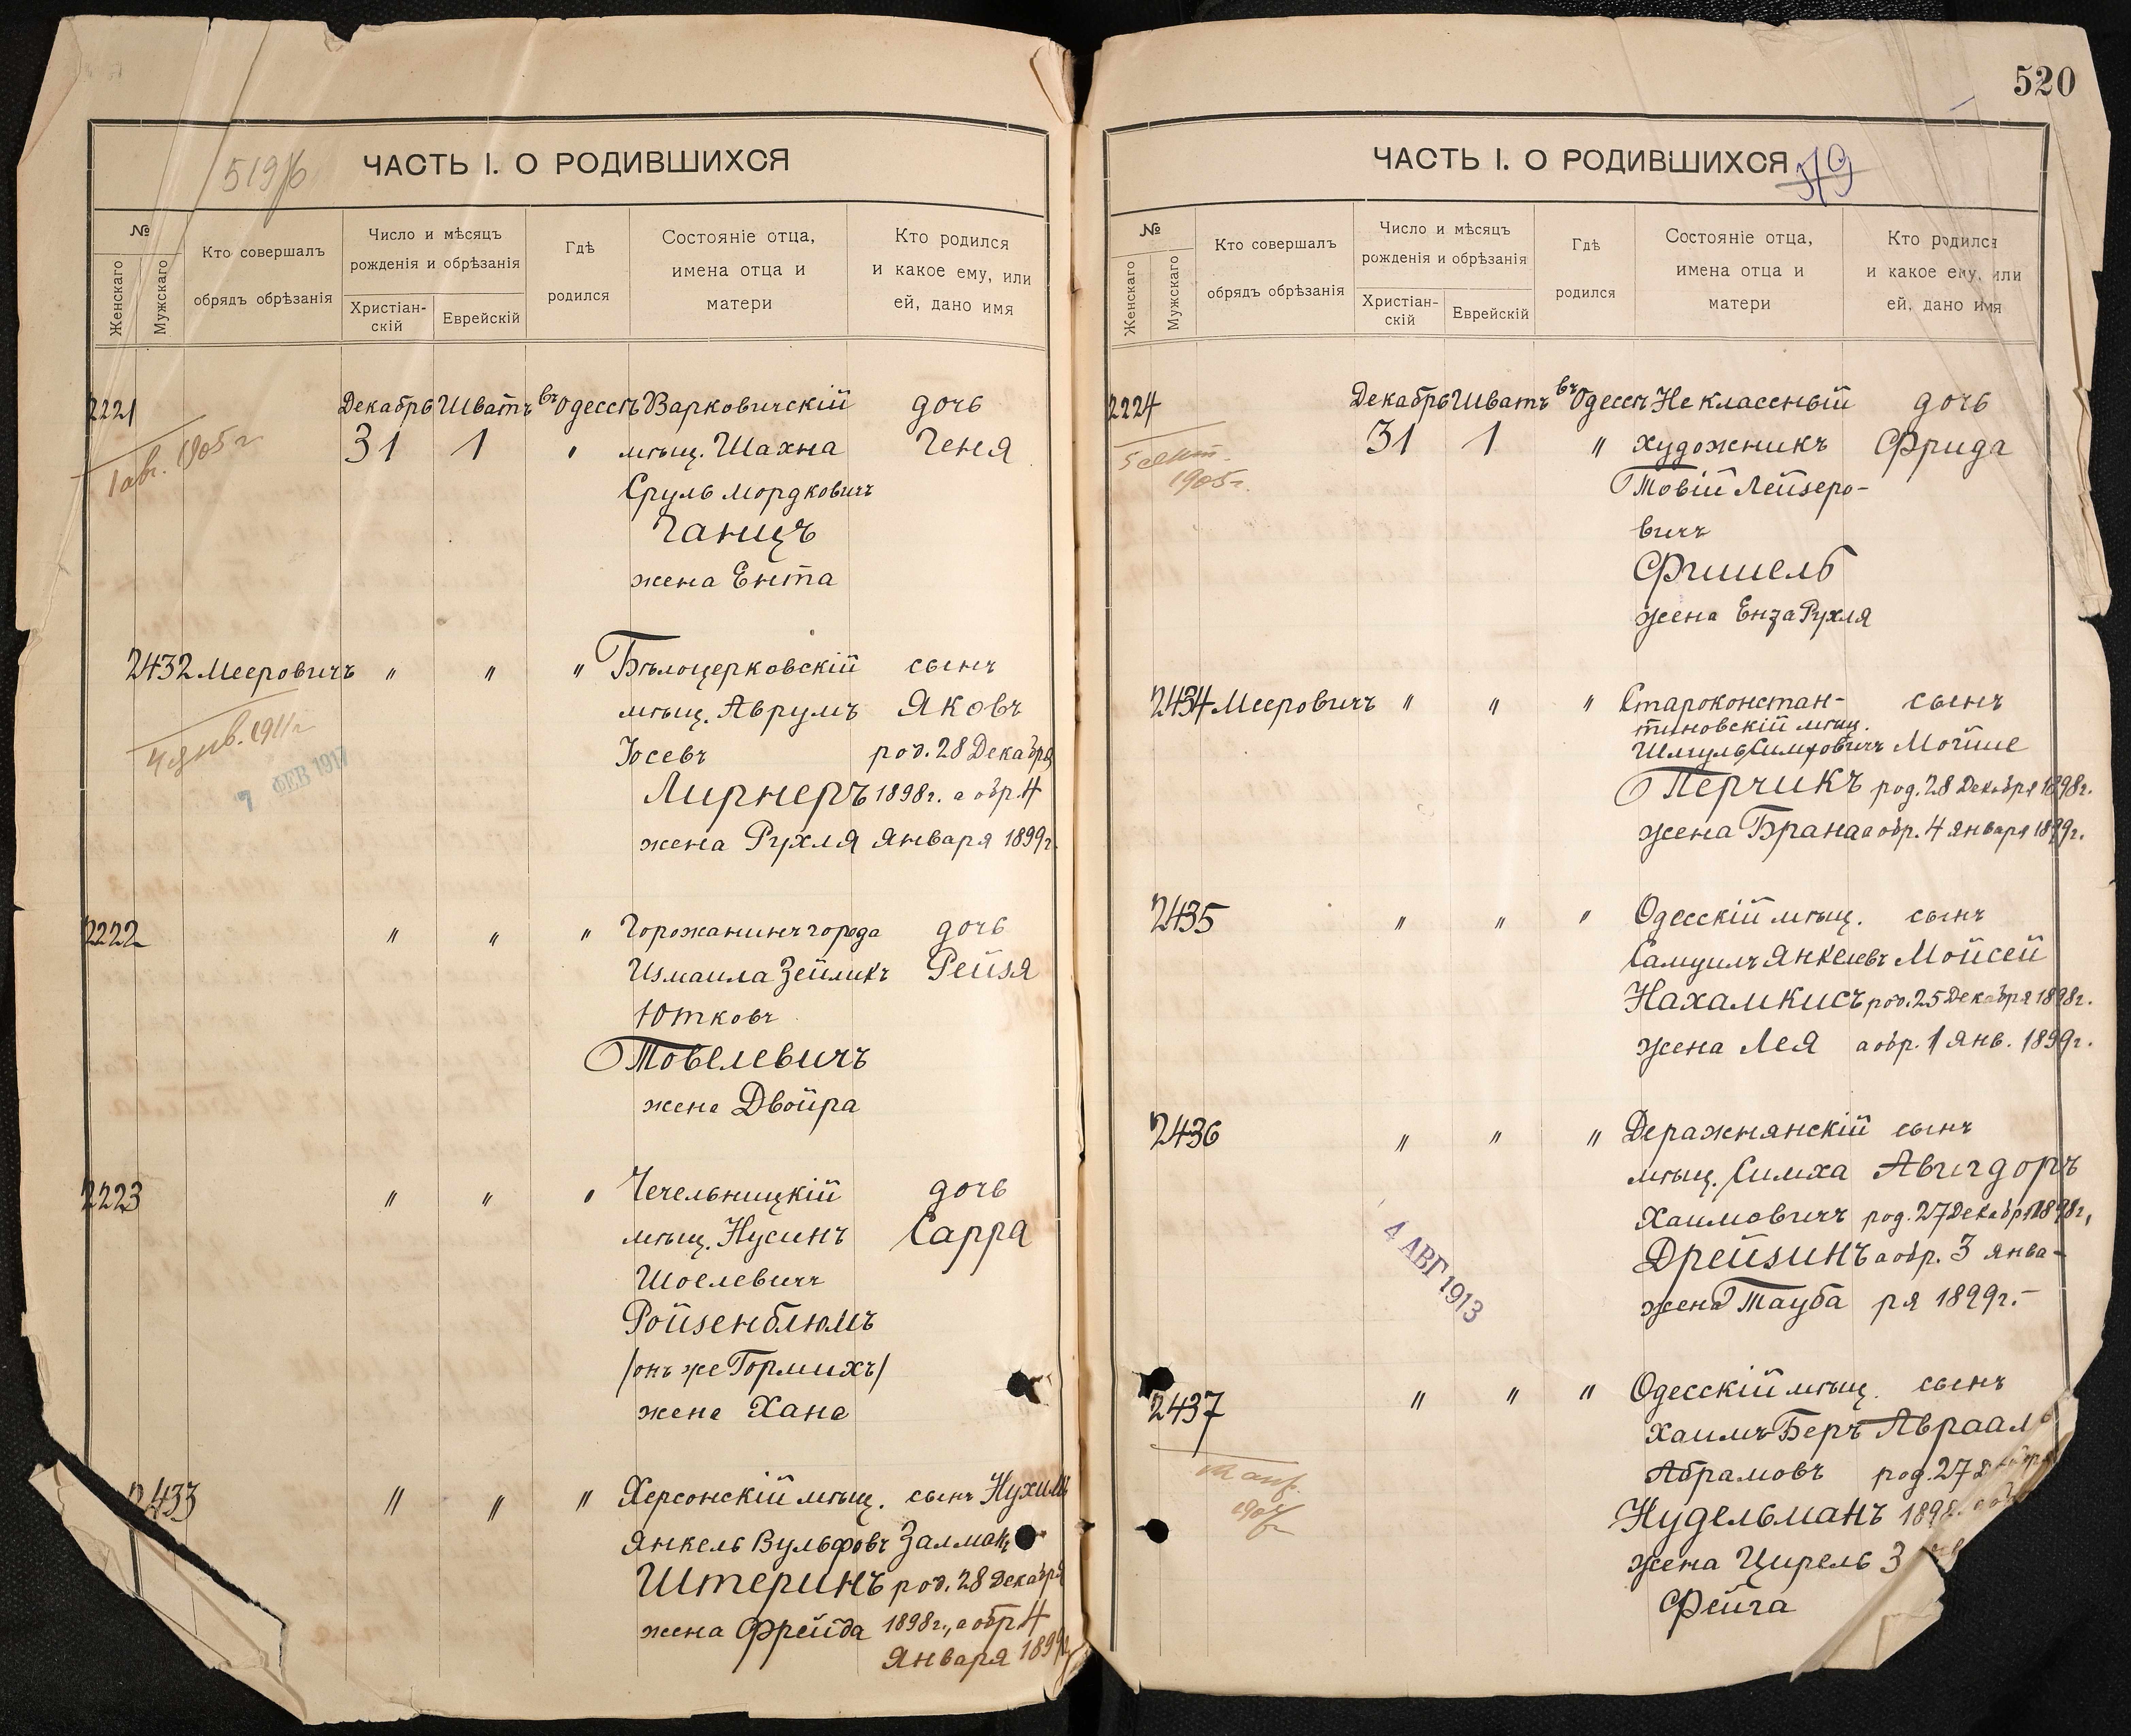 519/б
ЧАСТЬ I. О РОДИВШИХСЯ
№
Женскаго
Мужскаго
Кто совершалъ
обрядъ обрѣзанія
Число и мѣсяцъ
рожденія и обрѣзанія
Христіан-
скій
Еврейскій
Гдѣ
родился
Состояніе отца,
имена отца и
матери
Кто родился
и какое ему, или
ей, дано имя
2221 Декабрь Шватъ въ Одессѣ Варковичскій дочь
1 авг. 1905 г 31 1 " мѣщ. Шахна Геня
Сруль Мордковичъ
Ганцъ
жена Ента
2432 Мееровичъ " " " Бѣлоцерковскій сынъ
мѣщ. Аврумъ Яковъ
4 янв. 1911 г
Іосевъ род. 28 Декабря
7 ФЕВ 1917
Лирнеръ 1898 г. а обр. 4
жена Рухля Января 1899 г.
2222 " " " Горожанинъ города дочь
Измаила Зейликъ Рейзя
Ютковъ
Товелевичъ
жена Двойра
2223 " " " Чечельницкій дочь
мѣщ. Нусинъ Сарра
Шоелевичъ
Ройзенблюмъ
/онъ же Гормихъ/
жена Хана
2433 " " " Херсонскій мѣщ. сынъ Нухимъ
Янкель Вульфовъ Залманъ
Штеринъ род. 28 Декабря
жена Фрейда 1898 г., а обр 4
Января 1899
520
ЧАСТЬ I. О РОДИВШИХСЯ
519
№
Женскаго
Мужскаго
Кто совершалъ
обрядъ обрѣзанія
Число и мѣсяцъ
рожденія и обрѣзанія
Христіан-
скій
Еврейскій
Гдѣ
родился
Состояніе отца,
имена отца и
матери
Кто родился
и какое ему, или
ей, дано имя
2224 Декабрь Шватъ въ Одессѣ Не классный дочь
31 1 " художникъ Фрида
1905 г.
Товій Лейзеро-
вичъ
Фишель
жена Енза Рухля
2434 Мееровичъ " " " Староконстан- сынъ
тиновскій мѣщ.
Шмуль Симховичъ Мойше
Перчикъ род. 28 Декабря 1898 г.
жена Брана а обр. 4 января 1899 г.
2435 " " " Одесскій мѣщ. сынъ
Самуилъ Янкелевъ Мойсей
Нахамкисъ род. 25 Декабря 1898 г.
жена Лея а обр. 1 янв. 1899 г.
2436 " " " Деражнянскій сынъ
мѣщ. Симха Авигдоръ
Хаимовичъ род. 27 Декабря 1898 г,
4 АВГ 1913
Дрейзинъ а обр. 3 янва-
жена Тауба ря 1899 г.-
2437 " " " Одесскій мѣщ. сынъ
Хаимъ Беръ Авраам
Абрамовъ род. 27
Нудельманъ 1898
жена Цирель 3
Фейга